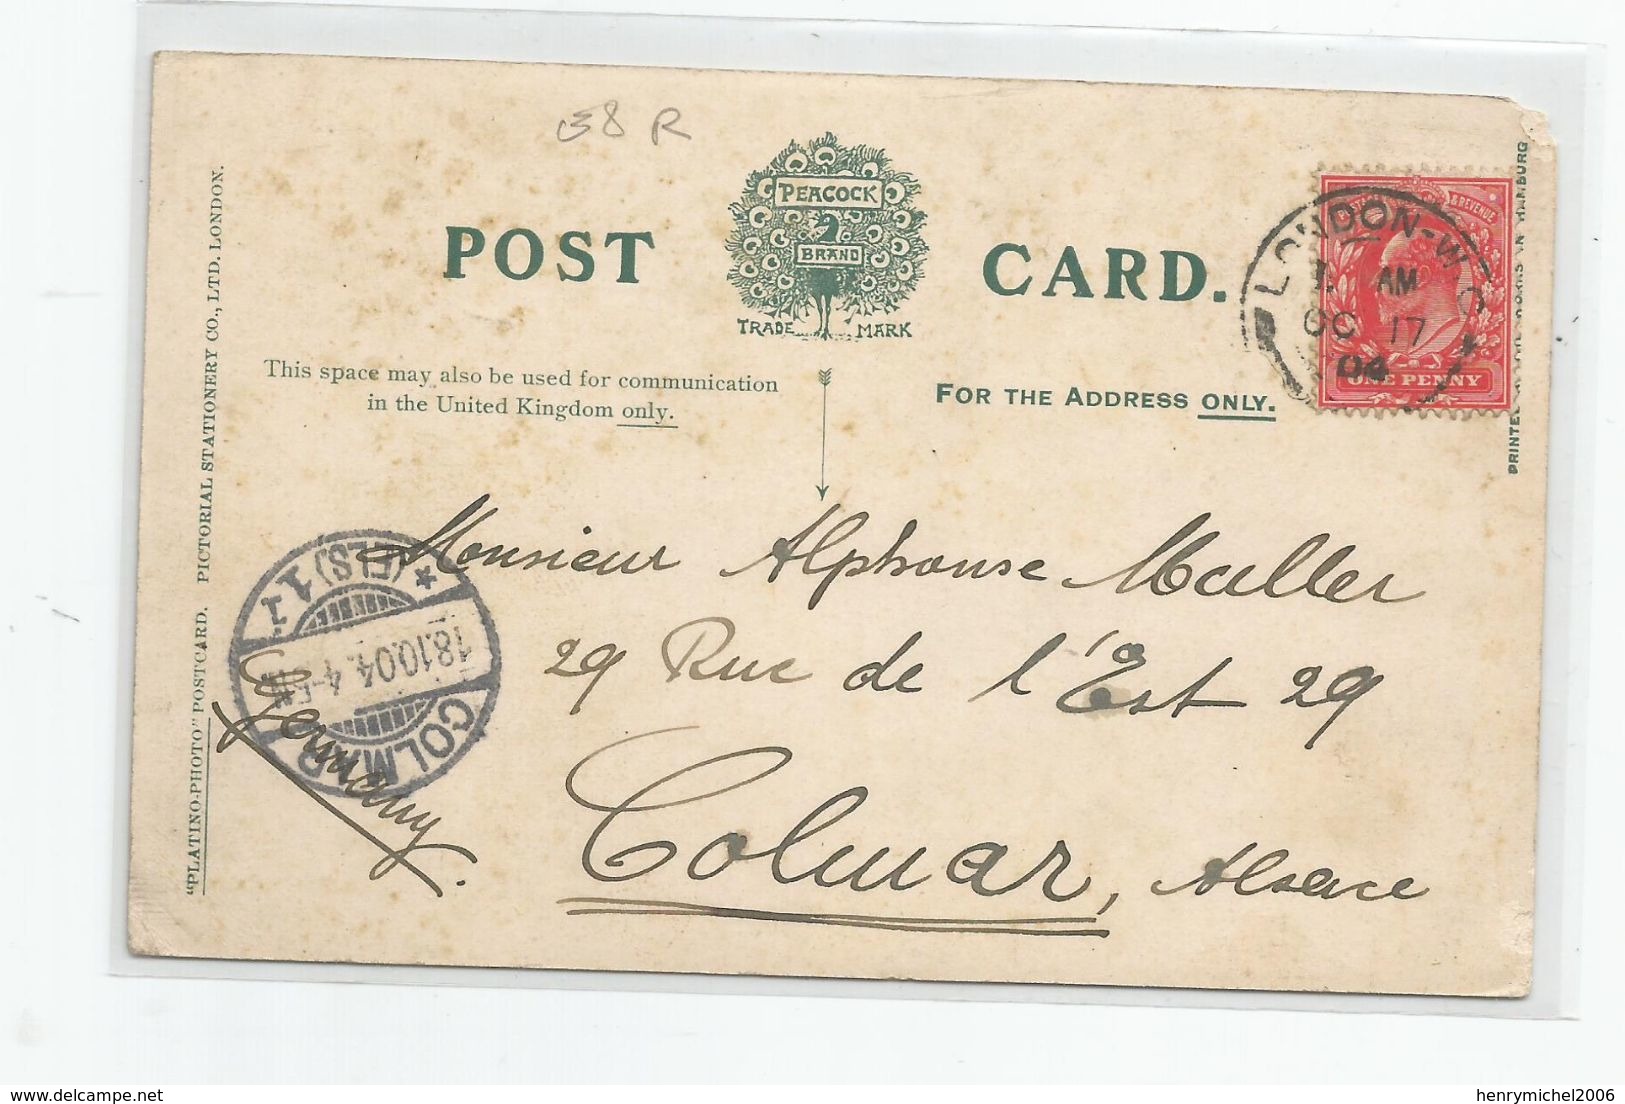 E8 R
POST CARD.
PEACOCK
BRAND
TRADE MARK
This space may also be used for communication
in the United Kingdom only.
FOR THE ADDRESS ONLY.
LONDON-W.C
AM
OC 17
04
& REVENUE
ONE PENNY
PRINTED
"PLATINO-PHOTO" POSTCARD. PICTORIAL STATIONERY CO., LTD. LONDON.
Monsieur Alphonse Muller
29 Rue de l'Est 29
Colmar, Alsace
Germany.
COLMAR
18.10.04. 4-5N
(ELS) 1
delcampe.net
henrymichel2006